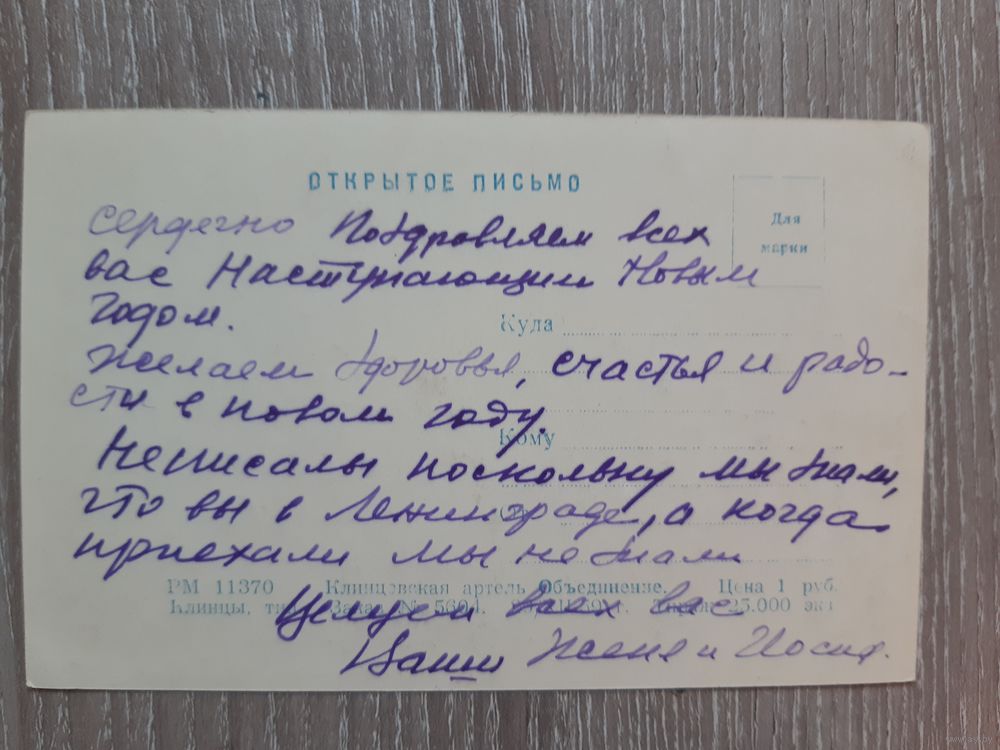 ОТКРЫТОЕ ПИСЬМО
Для
марки
Сердечно Поздровляем всех
вас Наступающим Новым
Годом.
Куда
Желаем здоровья, счастья и радо-
сти в новом году.
Кому
Неписалы поскольку мы знали,
что вы в Ленинграде, а когда
приехали мы не знали
РМ 11370 Клинцовская артель Объединение. Цена 1 руб.
Клинцы, Заказ № 5601. 25.000 экз
Целуем всех вас
Ваши Женя и Иосиф.